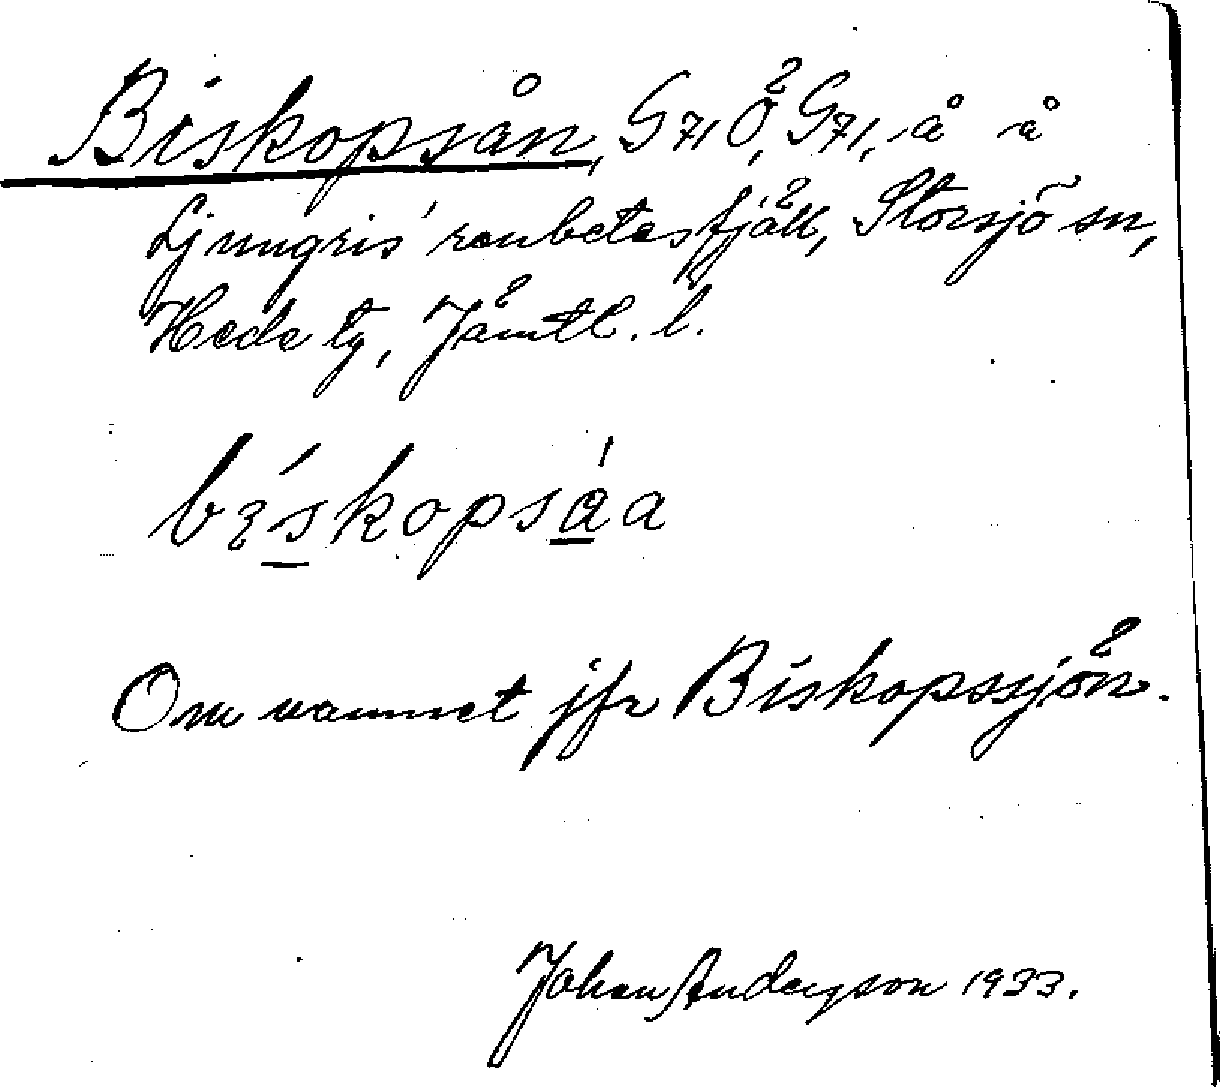 Biskopsån, G 71 Ö, G 71, å å
Ljungris' renbetesfjäll, Storsjö sn,
Hede tg, Jämtl. l.
bıskopsáa
Om namnet jfr Biskopssjön.
Johan Anderson 1933.